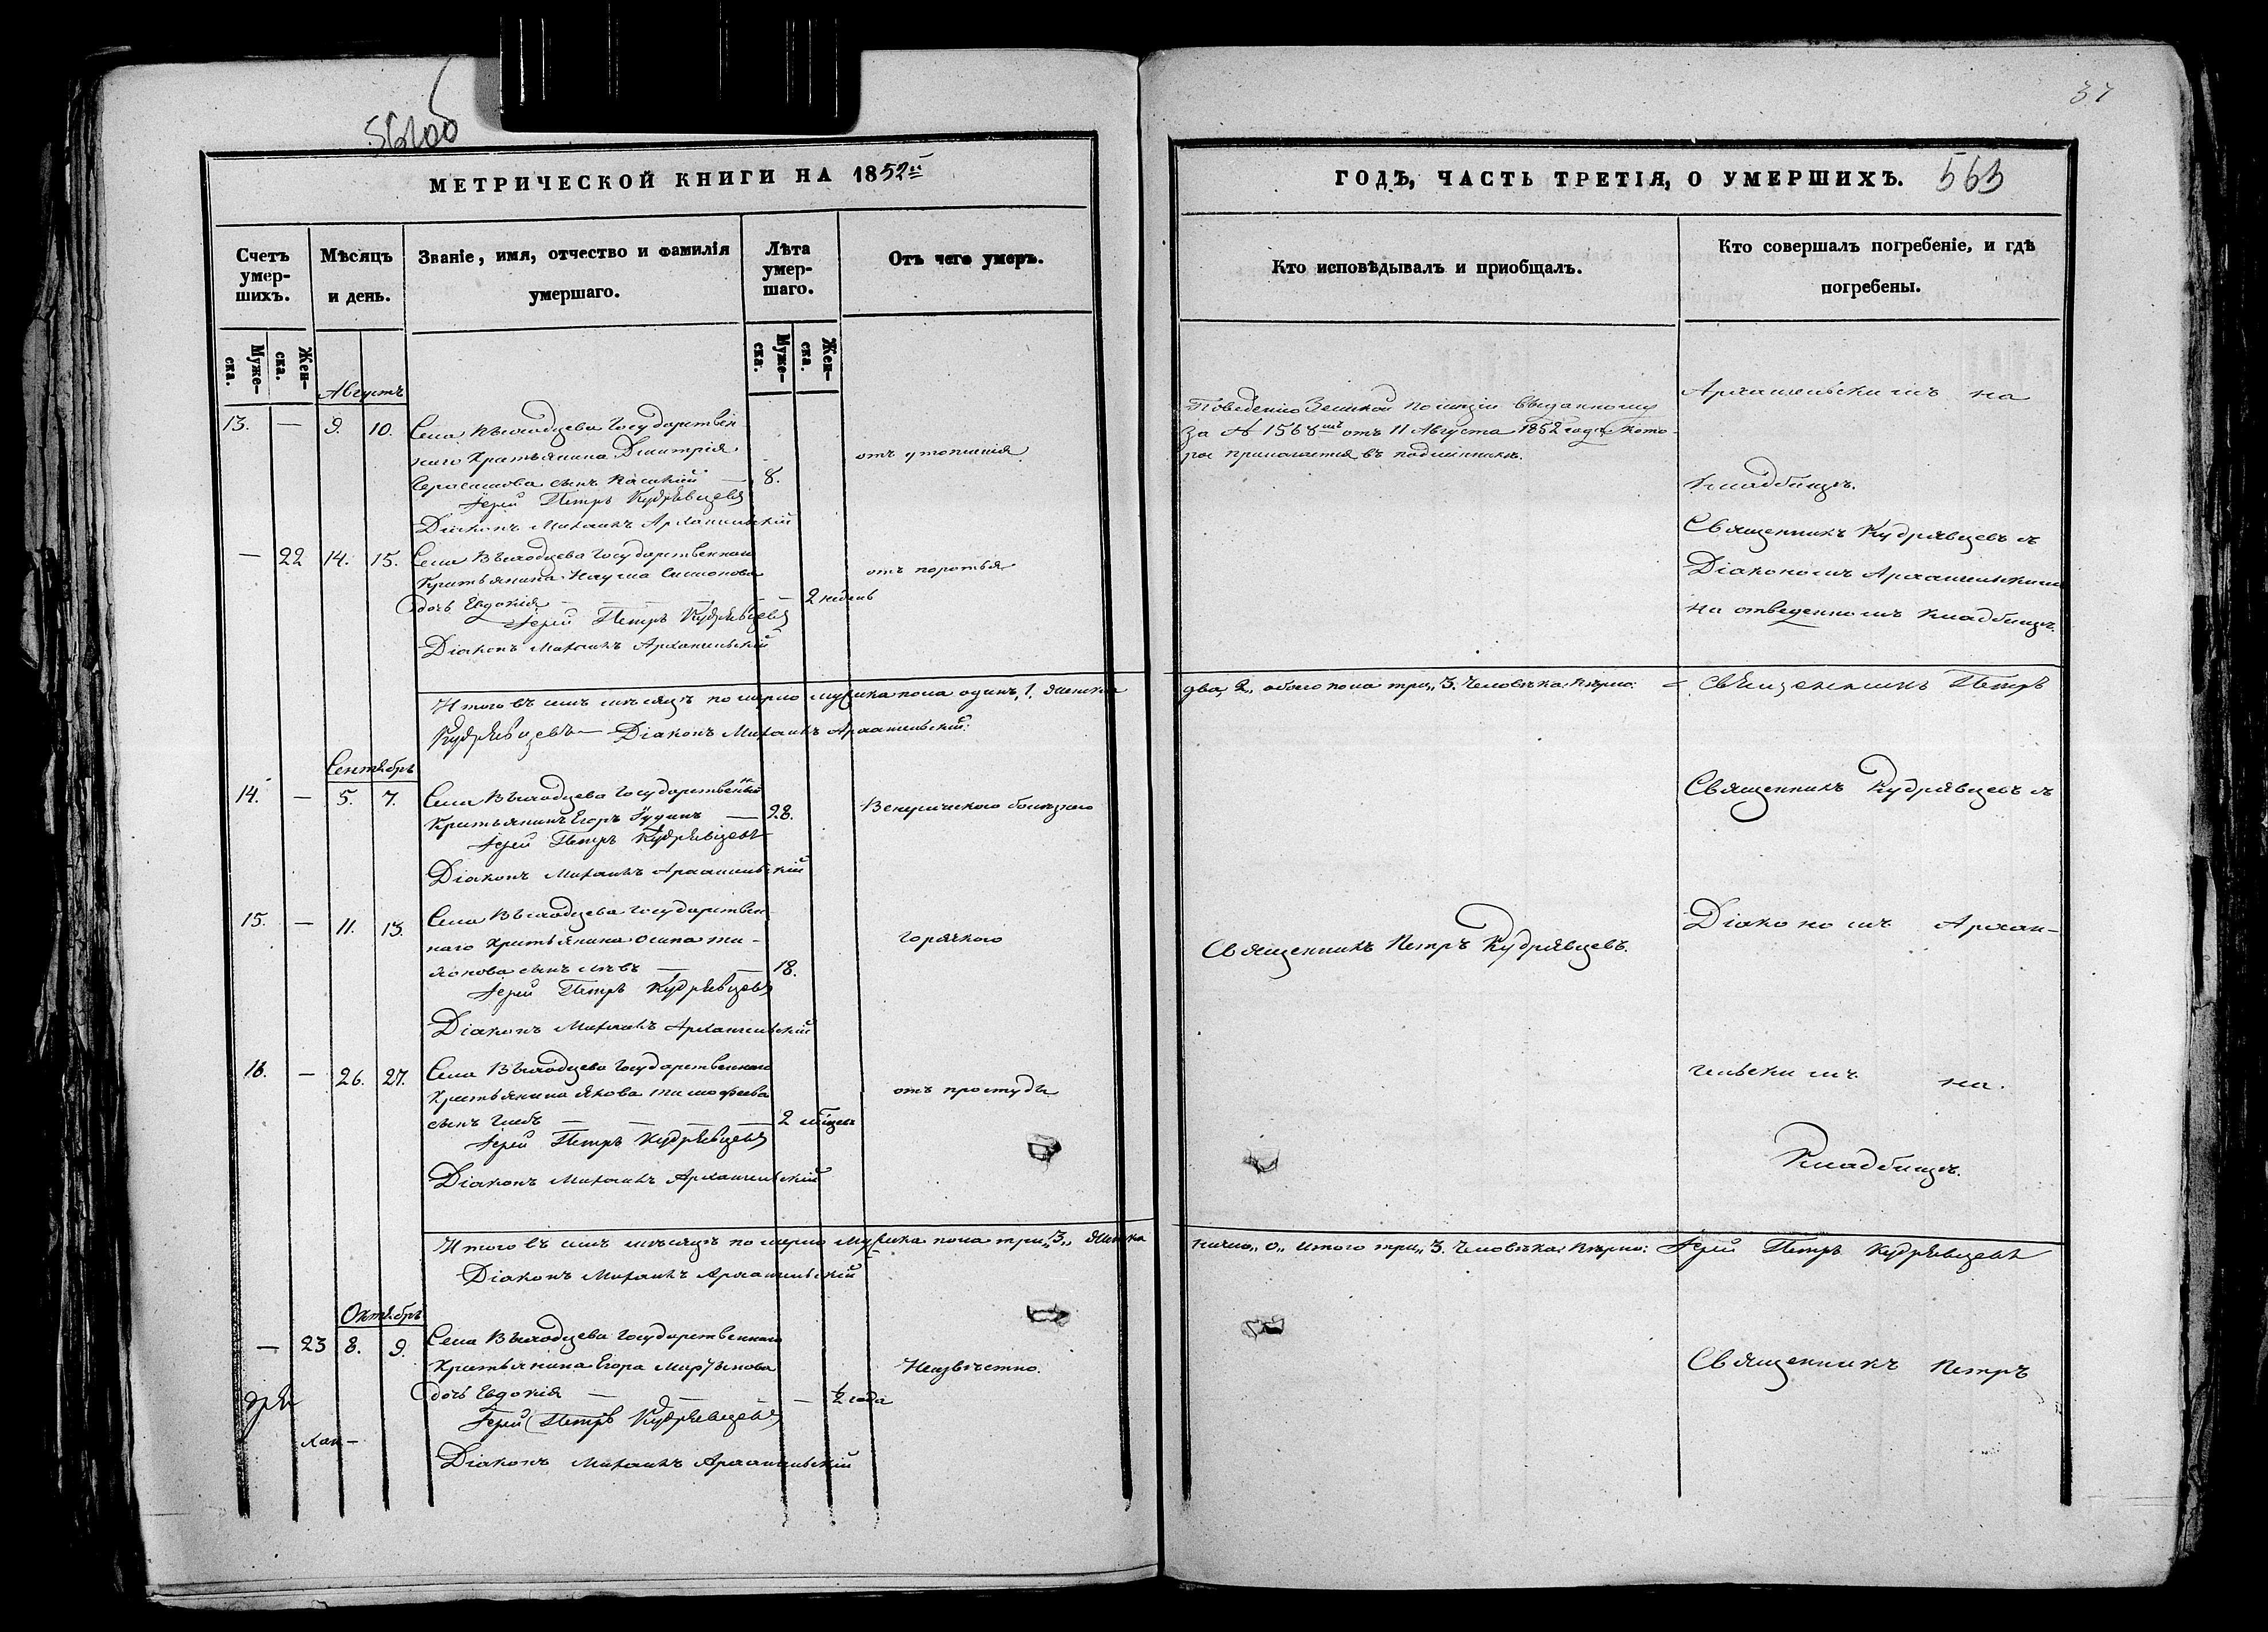 562об
МЕТРИЧЕСКОЙ КНИГИ НА 1852й
Счетъ умер-шихъ.
Мѣсяцъ и день.
Званіе, имя, отчество и фамилія умершаго.
Лѣта умер-шаго.
Отъ чего умеръ.
Муже-ска.
Жен-ска.
Муже-ска.
Жен-ска.
Августъ
13. — 9. 10. Села Выходцева Государствен
наго Крестьянина Дмитрія
сынъ 8. отъ утопленія
Іерей Петръ Кудрявцевъ
Діаконъ Михаилъ Архангельскій
— 22 14. 15. Села Выходцева Государственнаго
Крестьянина Наума Симонова
дочь Евдокія — — — — 2 недѣль
Іерей Петръ Кудрявцевъ
Діаконъ Михаилъ Архангельскій
Итого въ семъ мѣсяцѣ померло мужска пола одинъ, 1. женска
Кудрявцевъ — Діаконъ Михаилъ Архангельскій.
Сентябрь
14. — 5. 7. Села Выходцева Государственный
Крестьянинъ Егоръ — 28.
Іерей Петръ Кудрявцевъ
Діаконъ Михаилъ Архангельскій
15. — 11. 13. Села Выходцева Государствен
наго Крестьянина Осипа Ти- Горячкою
сынъ — — 18.
Іерей Петръ Кудрявцевъ
Діаконъ Михаилъ Архангельскій
16. — 26. 27. Села Выходцева Государственнаго
Крестьянина Якова Тимофеева отъ простуды
сынъ Глебъ — — — — 2 мѣсяцевъ
Іерей Петръ Кудрявцевъ
Діаконъ Михаилъ Архангельскій
Итого въ семъ мѣсяцѣ померло мужска пола три „3„ женска
Діаконъ Михаилъ Архангельскій
Октябрь
— 23 8. 9. Села Выходцева Государственнаго
Крестьянина Егора Неизвѣстно.
дочь Евдокія — — — ½ года
Іерей Петръ Кудрявцевъ
хан-
Діаконъ Михаилъ Архангельскій
37
ГОДЪ, ЧАСТЬ ТРЕТІЯ, О УМЕРШИХЪ. 563
Кто исповѣдывалъ и приобщалъ.
Кто совершалъ погребеніе, и гдѣ погребены.
Архангельскимъ на
Земской полиціи выданному
за № 1568мъ отъ 11 Августа 1852 года, кото-
рое прилагается въ подлинникѣ.
Кладбищѣ.
Священникъ Кудрявцевъ съ
Діакономъ Архангельскимъ
на отведенномъ кладбищѣ.
два, 2„ обоего пола три„ 3. человѣка; вѣрно: Священникъ Петръ
Священникъ Кудрявцевъ съ
Діакономъ Архан-
Священникъ Петръ Кудрявцевъ.
гельскимъ на
Кладбищѣ.
никого „0„ итого три„ 3. человѣка; вѣрно: Іерей Петръ Кудрявцевъ
Священникъ Петръ